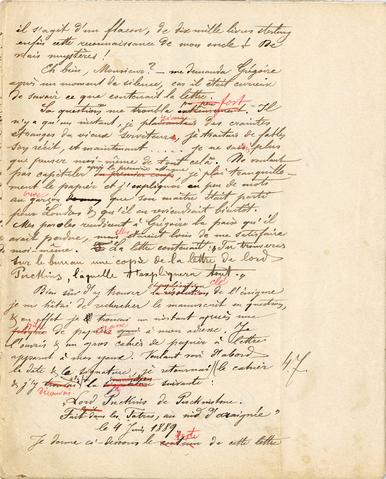 il s'agit d'un flacon, de dix mille livres sterling
enfin cette reconnaissance de mon oncle! De
vrais mystères!
Eh bien, Monsieur? – me demanda Grégoire
après un moment de silence, car il était curieux
de savoir ce que contenait la lettre.
Sa question me troubla un peu fort. Il
n'y a qu'un instant, je plaisantais des craintes
étranges du vieux serviteur, je traitais de fables
son récit, et maintenant .... je ne savais plus
que penser moi-même de tout cela. Ne voulant
pas capituler du premier coup, je pliai tranquille-
ment le papier et j'expliquai en peu de mots
au que son maître était parti
pour Londres & qu'il en reviendrait bientôt.
Mes paroles rendirent à Grégoire la paix qu'il
avait perdue, étaient loin de me satisfaire
moi-même. La lettre contenait: "Tu trouveras
sur le bureau une copie de la lettre de lord
Puckins, laquelle t'expliquera tout."
Bien sûr d'y trouver la clé de l'énigme
je me hâtai de rechercher le manuscrit en question,
& en effet je un instant après une
de papier à mon adresse. Je
l'ouvris & un gros cahier de papier à lettre
apparut à mes yeux. Voulant voir d'abord
la date & la signature, je retournai le cahier 47
& j'y la suivante:
Lord Puckins de Puckinstone.
Fait dans les Tatras, au nid d'araignée"
le 4 Juin 1889
Je donne ci-dessous le texte de cette lettre